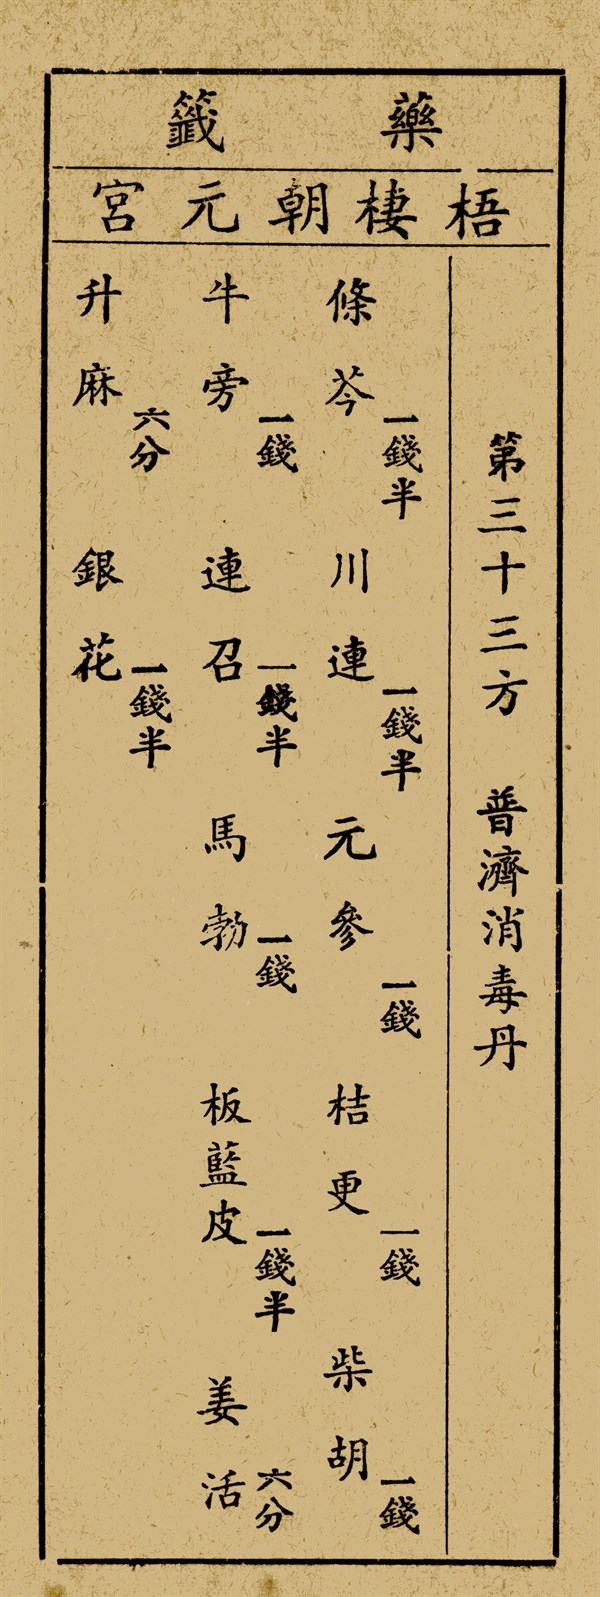 藥籤
梧棲朝元宮
第三十三方 普濟消毒丹
條芩一錢半 川連一錢半 元參一錢 桔更一錢 柴胡一錢
牛旁一錢 連召一錢半 馬勃一錢 板藍皮一錢半 姜活六分
升麻六分 銀花一錢半